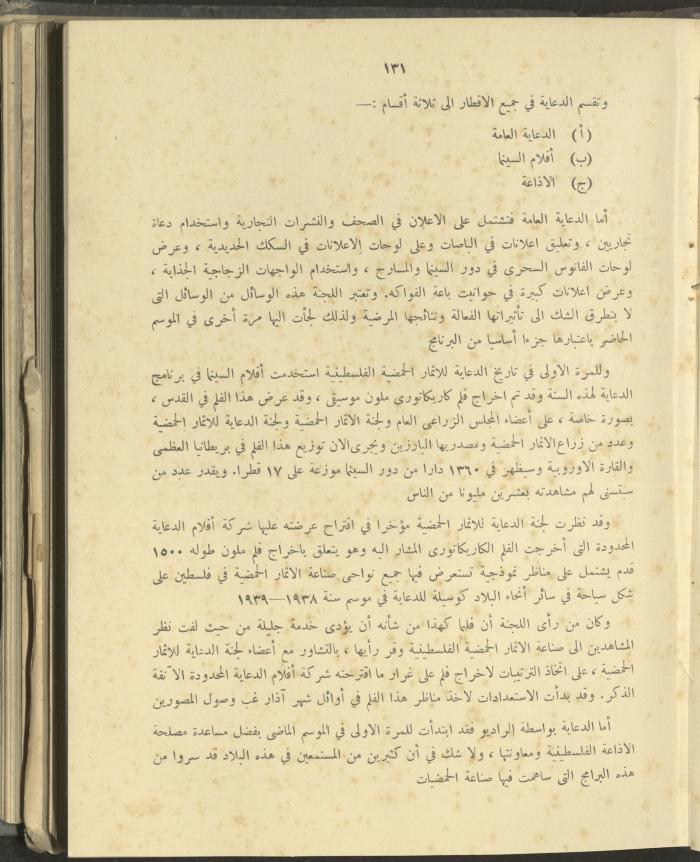 ١٣١
وتقسم الدعاية في جميع الاقطار الى ثلاثة أقسام :—
(أ) الدعاية العامة
(ب) أفلام السينما
(ج) الاذاعة
أما الدعاية العامة فتشتمل على الاعلان في الصحف والنشرات التجارية واستخدام دعاة
تجاريين ، وتعليق اعلانات في الباصات وعلى لوحات الاعلانات في السكك الحديدية ، وعرض
لوحات الفانوس السحرى في دور السينما والمسارح ، واستخدام الواجهات الزجاجية الجذابة ،
وعرض اعلانات كبيرة في حوانيت باعة الفواكه. وتعتبر اللجنة هذه الوسائل من الوسائل التى
لا يتطرق الشك الى تأثيراتها الفعالة ونتائجها المرضية ولذلك لجأت اليها مرة أخرى في الموسم
الحاضر باعتبارها جزءا أساسيا من البرنامج
وللمرة الاولى في تاريخ الدعاية للاثمار الحمضية الفلسطينية استخدمت أفلام السينما في برنامج
الدعاية لهذه السنة وقد تم اخراج فلم كاريكاتورى ملون موسيقى ، وقد عرض هذا الفلم في القدس ،
بصورة خاصة ، على أعضاء المجلس الزراعى العام ولجنة الاثمار الحمضية ولجنة الدعاية للاثمار الحمضية
وعدد من زراع الاثمار الحمضية ومصدريها البارزين ويجرى الان توزيع هذا الفلم في بريطانيا العظمى
والقارة الاوروبية وسيظهر في ١٣٦٠ دارا من دور السينما موزعة على ١٧ قطرا. ويقدر عدد من
سيتسنى لهم مشاهدته بعشرين مليونا من الناس
وقد نظرت لجنة الدعاية للاثمار الحمضية مؤخرا في اقتراح عرضته عليها شركة أفلام الدعاية
المحدودة التى أخرجت الفلم الكاريكاتورى المشار اليه وهو يتعلق باخراج فلم ملون طوله ١٥٠٠
قدم يشتمل على مناظر نموذجية تستعرض فيها جميع نواحى صناعة الاثمار الحمضية في فلسطين على
شكل سياحة في سائر أنحاء البلاد كوسيلة للدعاية في موسم سنة ١٩٣٨—١٩٣٩
وكان من رأى اللجنة أن فلما كهذا من شأنه أن يؤدى خدمة جليلة من حيث لفت نظر
المشاهدين الى صناعة الاثمار الحمضية الفلسطينية وقر رأيها ، بالتشاور مع أعضاء لجنة الدعاية للاثمار
الحمضية ، على اتخاذ الترتيبات لاخراج فلم على غرار ما اقترحته شركة أفلام الدعاية المحدودة الآنفة
الذكر. وقد بدأت الاستعدادات لاخذ مناظر هذا الفلم في أوائل شهر آذار غب وصول المصورين
أما الدعاية بواسطة الراديو فقد ابتدأت للمرة الاولى في الموسم الماضى بفضل مساعدة مصلحة
الاذاعة الفلسطينية ومعاونتها ، ولا شك في أن كثيرين من المستمعين في هذه البلاد قد سروا من
هذه البرامج التى ساهمت فيها صناعة الحمضيات